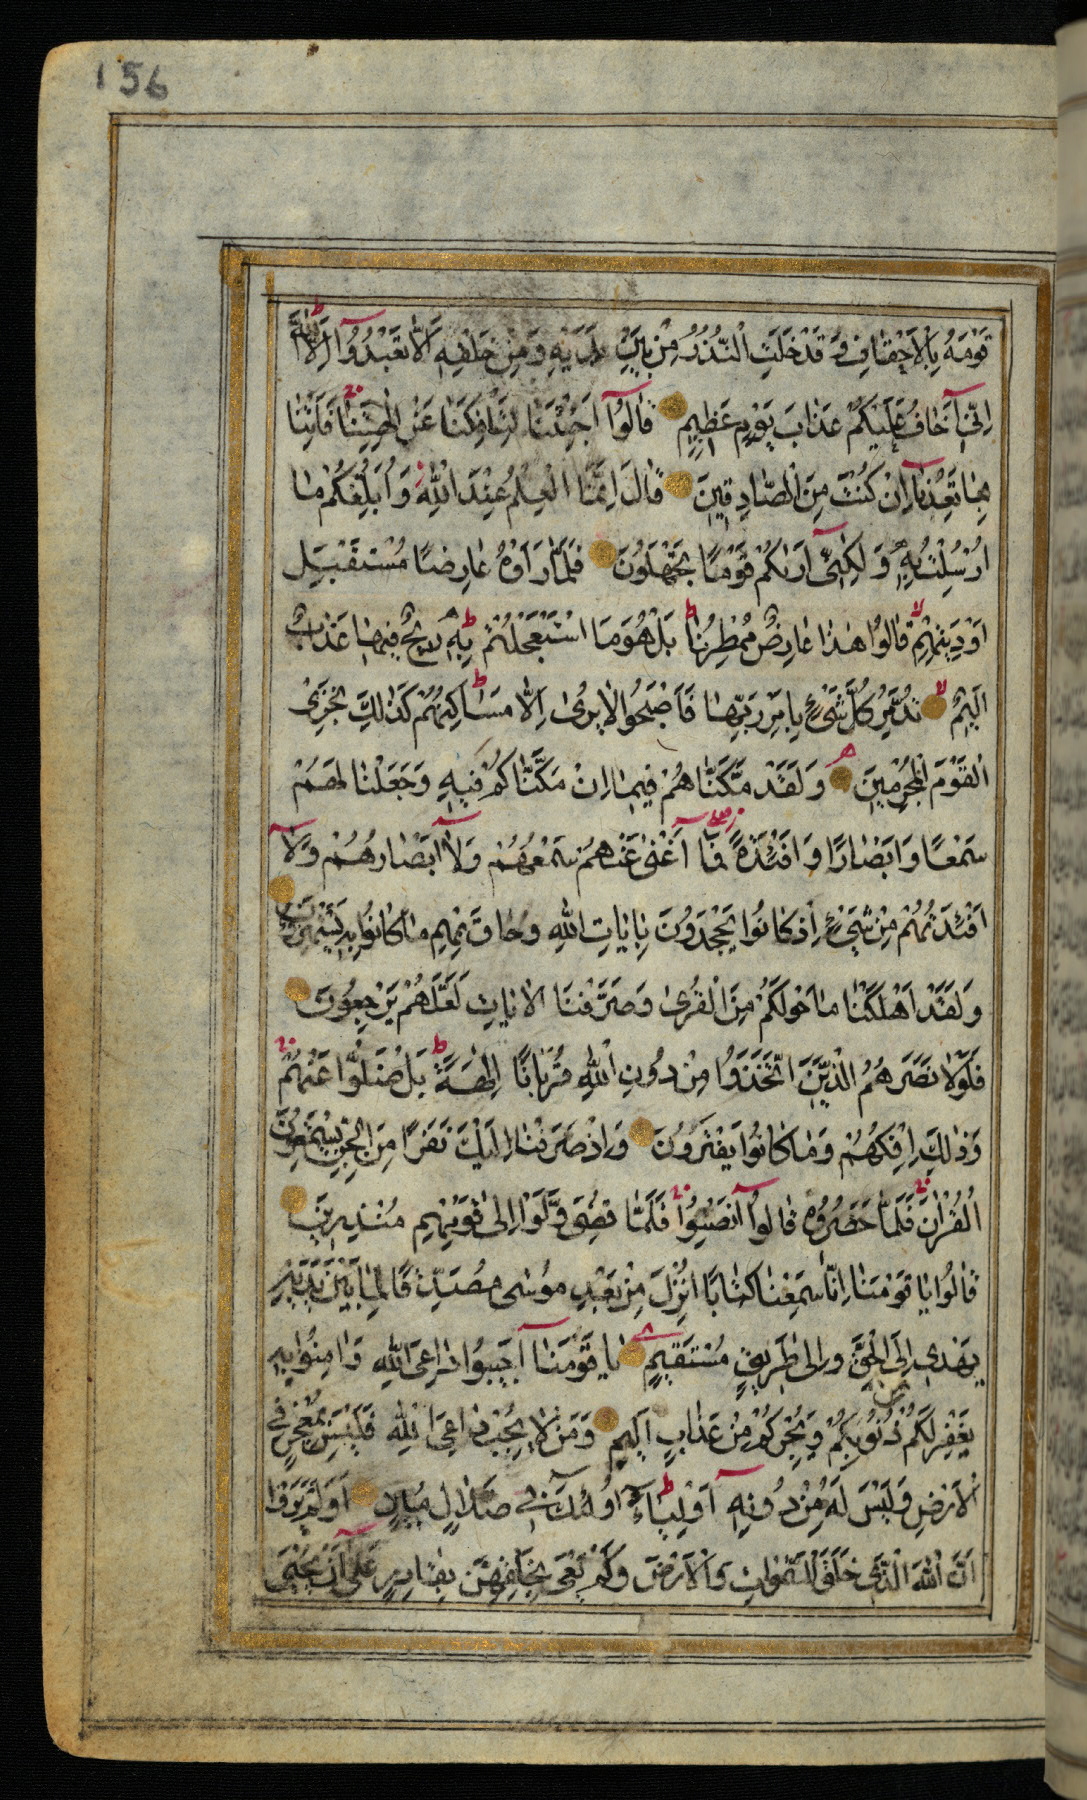 156
قَوْمَهُ بِالْاَحْقَافِ وَقَدْ خَلَتِ النُّذُرُ مِنْ بَيْنِ يَدَيْهِ وَمِنْ خَلْفِهِ اَلَّا تَعْبُدُوا اِلَّا اللهَ
اِنِّي اَخَافُ عَلَيْكُمْ عَذَابَ يَوْمٍ عَظِيمٍ قَالُوا اَجِئْتَنَا لِتَاْفِكَنَا عَنْ اٰلِهَتِنَا فَاْتِنَا
بِمَا تَعِدُنَا اِنْ كُنْتَ مِنَ الصَّادِقِينَ قَالَ اِنَّمَا الْعِلْمُ عِنْدَ اللهِ وَاُبَلِّغُكُمْ مَا
اُرْسِلْتُ بِهِ وَلٰكِنِّي اَرٰيكُمْ قَوْمًا تَجْهَلُونَ فَلَمَّا رَاَوْهُ عَارِضًا مُسْتَقْبِلَ
اَوْدِيَتِهِمْ قَالُوا هٰذَا عَارِضٌ مُمْطِرُنَا بَلْ هُوَ مَا اسْتَعْجَلْتُمْ بِهِ رِيحٌ فِيهَا عَذَابٌ
اَلِيمٌ تُدَمِّرُ كُلَّ شَيْءٍ بِاَمْرِ رَبِّهَا فَاَصْبَحُوا لَا يُرٰى اِلَّا مَسَاكِنُهُمْ كَذٰلِكَ نَجْزِي
الْقَوْمَ الْمُجْرِمِينَ وَلَقَدْ مَكَّنَّاهُمْ فِيمَا اِنْ مَكَّنَّاكُمْ فِيهِ وَجَعَلْنَا لَهُمْ
سَمْعًا وَاَبْصَارًا وَاَفْئِدَةً فَمَا اَغْنٰى عَنْهُمْ سَمْعُهُمْ وَلَا اَبْصَارُهُمْ وَلَا
اَفْئِدَتُهُمْ مِنْ شَيْءٍ اِذْ كَانُوا يَجْحَدُونَ بِاٰيَاتِ اللهِ وَحَاقَ بِهِمْ مَا كَانُوا بِهِ يَسْتَهْزِؤُنَ
وَلَقَدْ اَهْلَكْنَا مَا حَوْلَكُمْ مِنَ الْقُرٰى وَصَرَّفْنَا الْاٰيَاتِ لَعَلَّهُمْ يَرْجِعُونَ
فَلَوْلَا نَصَرَهُمُ الَّذِينَ اتَّخَذُوا مِنْ دُونِ اللهِ قُرْبَانًا اٰلِهَةً بَلْ ضَلُّوا عَنْهُمْ
وَذٰلِكَ اِفْكُهُمْ وَمَا كَانُوا يَفْتَرُونَ وَاِذْ صَرَفْنَا اِلَيْكَ نَفَرًا مِنَ الْجِنِّ يَسْتَمِعُونَ
الْقُرْاٰنَ فَلَمَّا حَضَرُوهُ قَالُوا اَنْصِتُوا فَلَمَّا قُضِيَ وَلَّوْا اِلٰى قَوْمِهِمْ مُنْذِرِينَ
قَالُوا يَا قَوْمَنَا اِنَّا سَمِعْنَا كِتَابًا اُنْزِلَ مِنْ بَعْدِ مُوسٰى مُصَدِّقًا لِمَا بَيْنَ يَدَيْهِ
يَهْدِي اِلَى الْحَقِّ وَاِلٰى طَرِيقٍ مُسْتَقِيمٍ يَا قَوْمَنَا اَجِيبُوا دَاعِيَ اللهِ وَاٰمِنُوا بِهِ
يَغْفِرْ لَكُمْ مِنْ ذُنُوبِكُمْ وَيُجِرْكُمْ مِنْ عَذَابٍ اَلِيمٍ وَمَنْ لَا يُجِبْ دَاعِيَ اللهِ فَلَيْسَ بِمُعْجِزٍ فِي
الْاَرْضِ وَلَيْسَ لَهُ مِنْ دُونِهِ اَوْلِيَاءُ اُولٰئِكَ فِي ضَلَالٍ مُبِينٍ اَوَلَمْ يَرَوْا
اَنَّ اللهَ الَّذِي خَلَقَ السَّمٰوَاتِ وَالْاَرْضَ وَلَمْ يَعْيَ بِخَلْقِهِنَّ بِقَادِرٍ عَلٰى اَنْ يُحْيِيَ